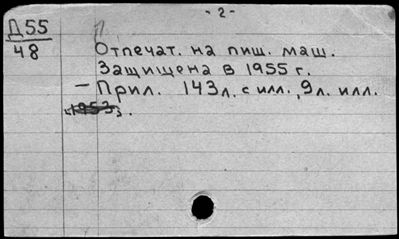 - 2 -
Д 55
48
Отпечат. на пиш. маш.
Защищена в 1955 г.
— Прил. 143 л. с илл., 9 л. илл.